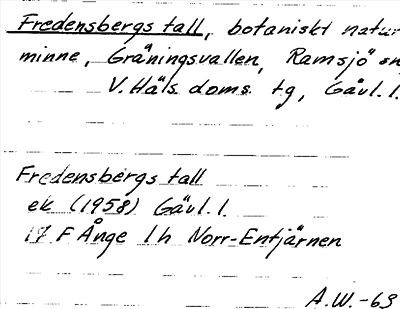 Fredensbergs tall, botaniskt natur
minne, Gräningsvallen, Ramsjö sn,
V. Häls. doms. tg, Gävl. l.
Fredensbergs tall
ek (1958) Gävl. l.
17 F Ånge 1h Norr-Entjärnen
A.W. -63